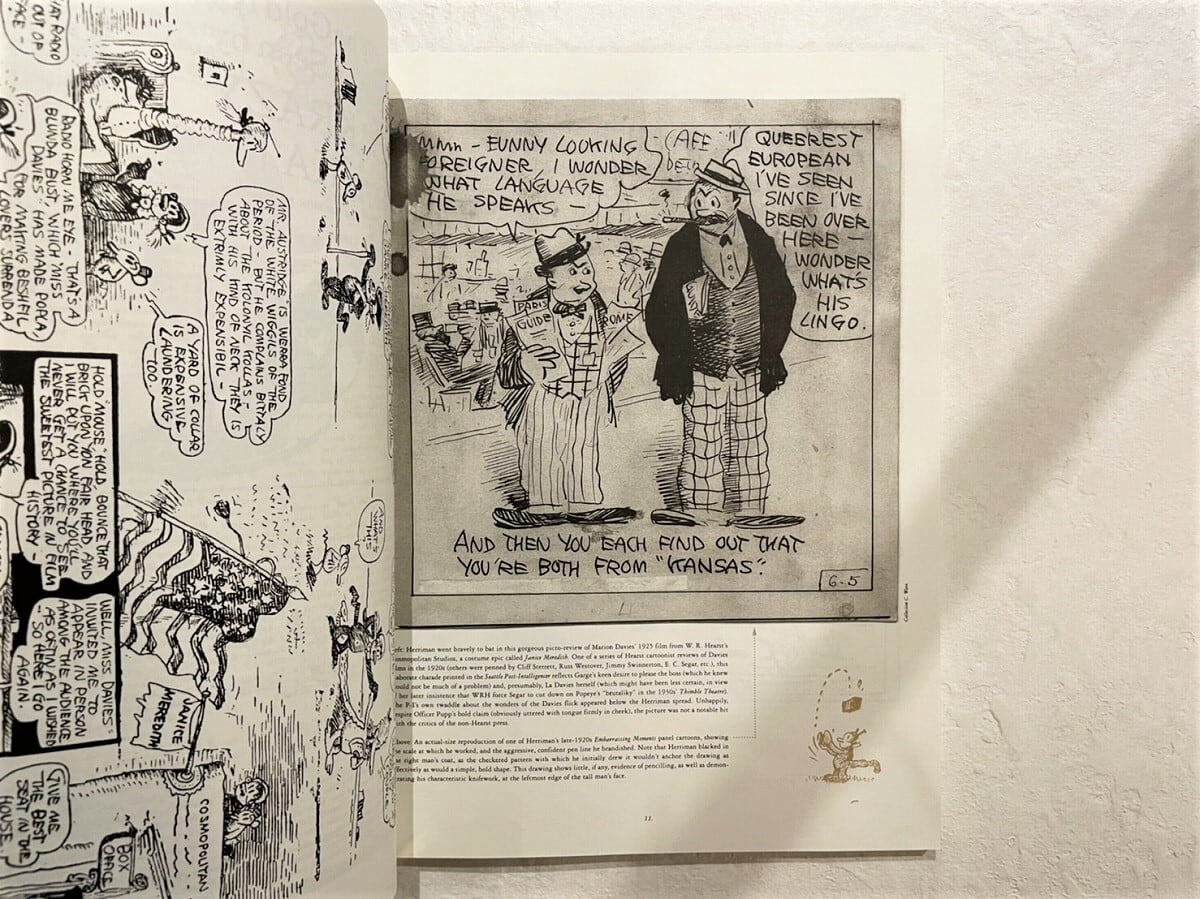 AT RADIO
OUT OF
FACE -
RADIO HORN, ME EYE - THAT'S A
BLUNDA BUST, WHICH MISS
DAVIES HAS MADE POPLA
FOR MAKING BESHFIL
LOVERS SURRENDA
MR. AUSTRIDGE IS WERRA FOND
OF THE WHITE WIGGILS OF THE
PERIOD - BUT HE COMPLAINS BITTALY
ABOUT THE KOLONYIL KOLLAS -
WITH HIS KIND OF NECK THEY IS
EXTRIMLY EXPENSIBIL -
A YARD OF COLLAR
IS EXPENSIVE
LAUNDERING
- TOO.
HOLD MOUSE' HOLD, BOUNCE THAT
BRICK UPON YON FAIR HEAD AND
I WILL PUT YOU WHERE YOU'LL
NEVER GET A CHANCE TO SEE
THE SWEETEST PICTURE IN FILM
HISTORY -
WELL, MISS DAVIES
INVITED ME TO
APPEAR IN PERSON
AMONG THE AUDIENCE
AS OFTIN AS I WISHED
- SO HERE I GO
AGAIN.
AND
WHAT'S
THIS
JANICE
MEREDITH
GIVE ME
THE BEST
SEAT IN THE
HOUSE
COSMOPOLITAN
BOX
OFFICE
MMM - FUNNY LOOKING
FOREIGNER, I WONDER
WHAT LANGUAGE
HE SPEAKS -
CAFE
QUEEREST
EUROPEAN
I'VE SEEN
SINCE I'VE
BEEN OVER
HERE -
I WONDER
WHAT'S
HIS
LINGO.
PARIS
GUIDE
ROME
AND THEN YOU EACH FIND OUT THAT
YOU'RE BOTH FROM "KANSAS".
6-5
Collection C. Ware
eft: Herriman went bravely to bat in this gorgeous picto-review of Marion Davies' 1925 film from W. R. Hearst's
osmopolitan Studios, a costume epic called Janice Meredith. One of a series of Hearst cartoonist reviews of Davies
lms in the 1920s (others were penned by Cliff Sterrett, Russ Westover, Jimmy Swinnerton, E. C. Segar, etc.), this
aborate charade printed in the Seattle Post-Intelligence reflects Garge's keen desire to please the boss (which he knew
ould not be much of a problem) and, presumably, La Davies herself (which might have been less certain, in view
f her later insistence that WRH force Segar to cut down on Popeye's "brutality" in the 1930s' Thimble Theatre).
he P-I's own twaddle about the wonders of the Davies flick appeared below the Herriman spread. Unhappily,
espite Officer Pupp's bold claim (obviously uttered with tongue firmly in cheek), the picture was not a notable hit
ith the critics of the non-Hearst press.
bove: An actual-size reproduction of one of Herriman's late-1920s Embarrassing Moments panel cartoons, showing
e scale at which he worked, and the aggressive, confident pen line he brandished. Note that Herriman blacked in
e right man's coat, as the checkered pattern with which he initially drew it wouldn't anchor the drawing as
fectively as would a simple, bold shape. This drawing shows little, if any, evidence of pencilling, as well as demon-
rating his characteristic knifework, at the leftmost edge of the tall man's face.
11.